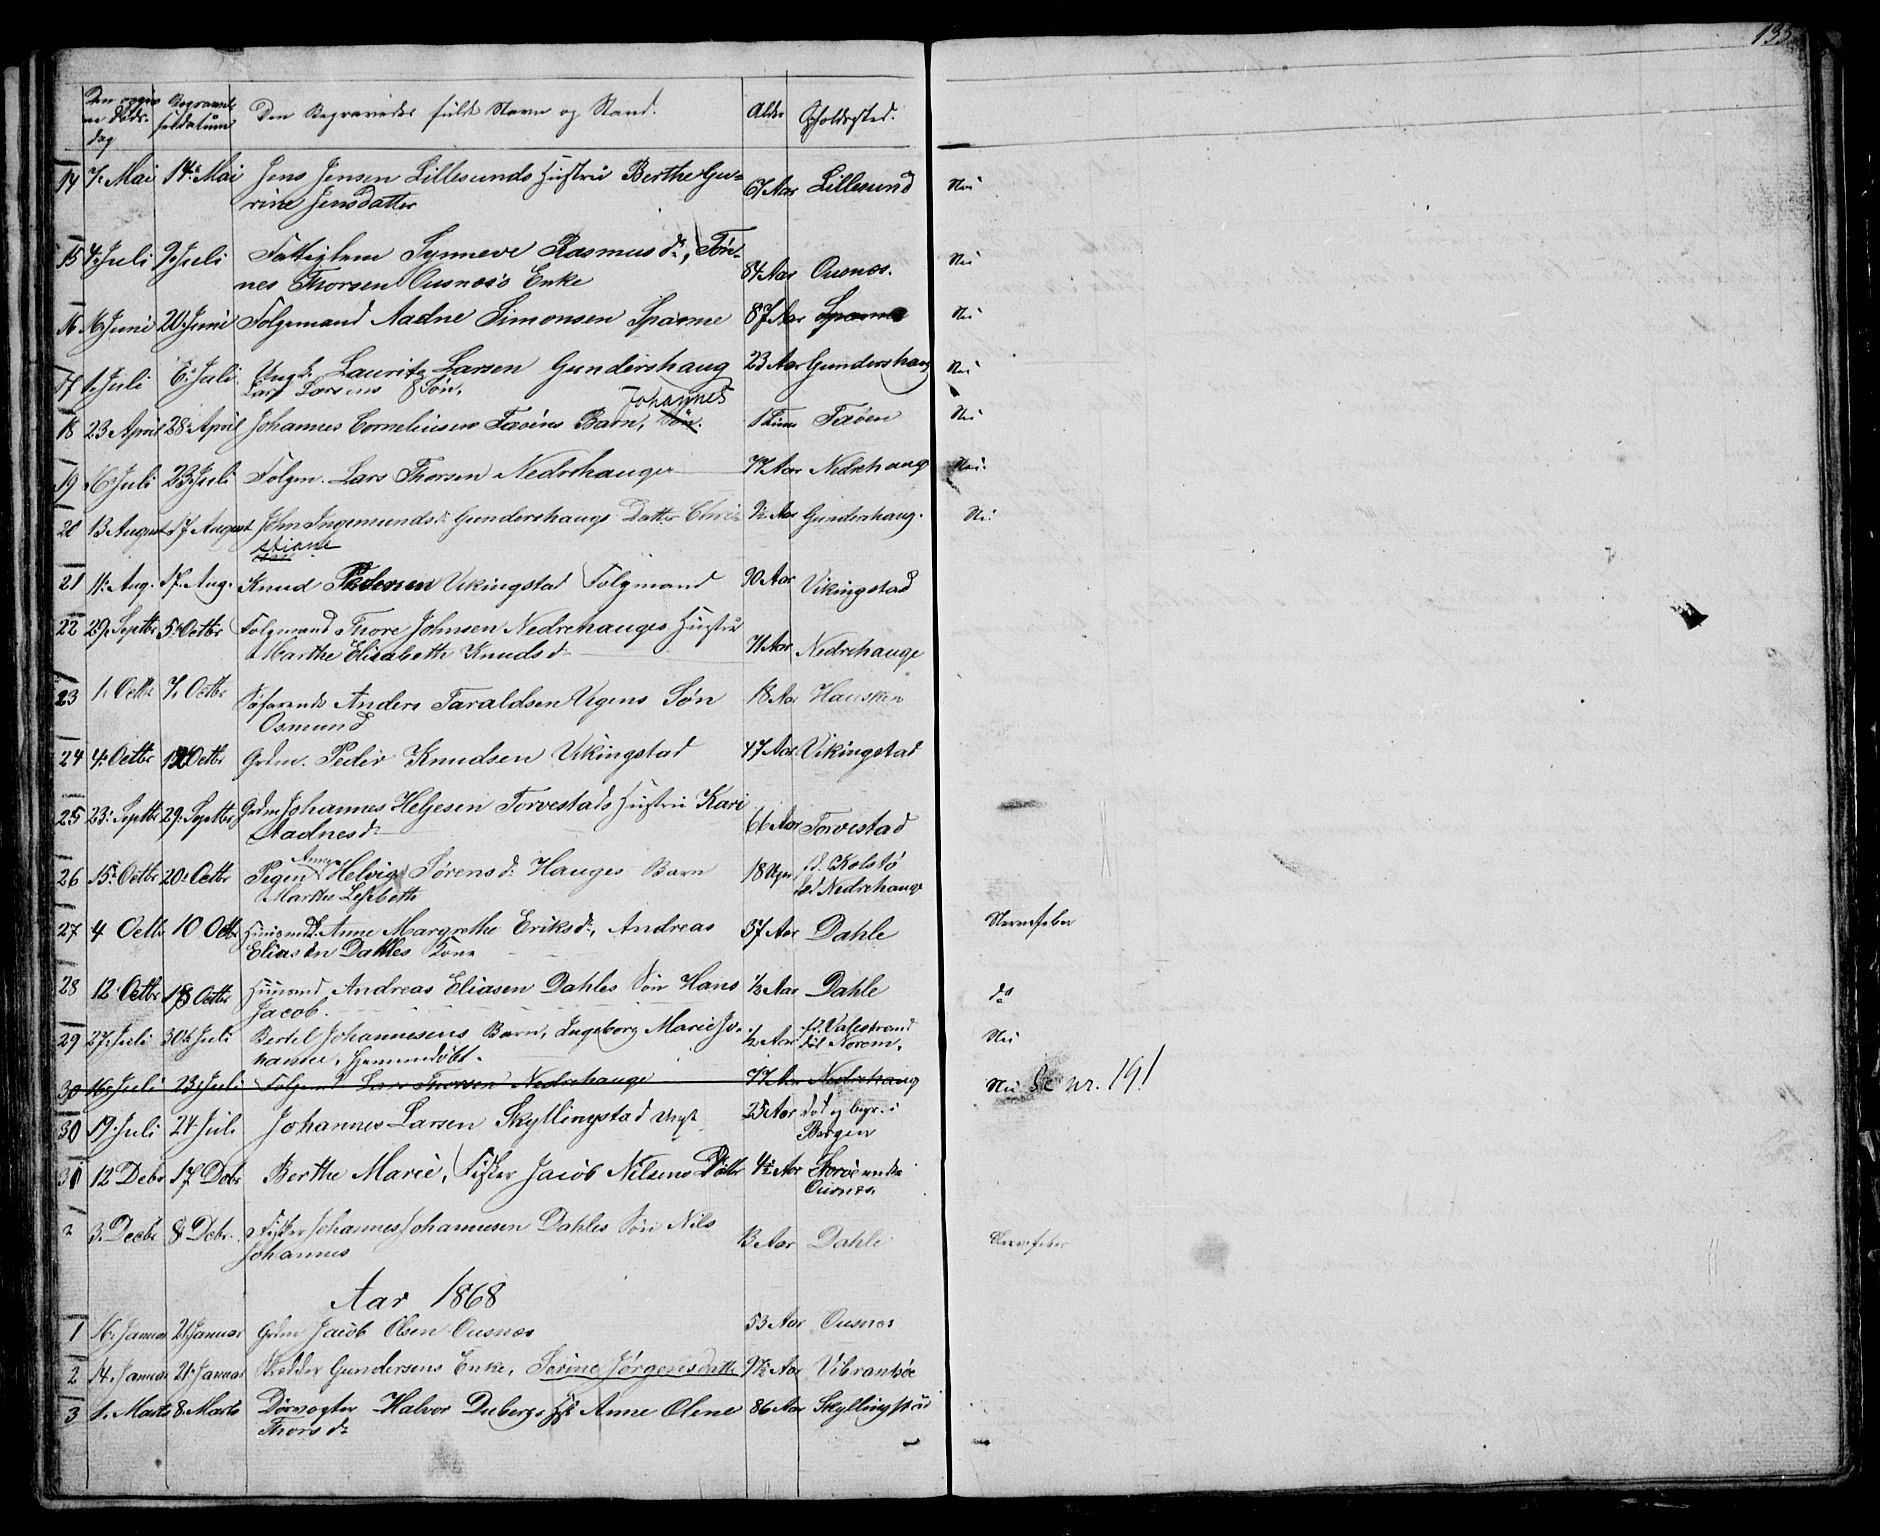 133
Den opgivne Døds-dag Begravelsesdatum Den Begravedes fulde Navn og Stand. Alder Opholdssted.
14 7. Mai 14. Mai Jens Jensen Lillesunds Hustru Berthe Gu-
rine Jensdatter 67 Aar Lillesund Nei
15 4. Juli 9. Juli Fattiglem Synneve Rasmusd., Tøn-
nes Thorsen Ousnes's Enke 84 Aar Ousnes. Nei
16 16 Juni 20 Juni Folgemand Aadne Simonsen Spanne 87 Aar Spanne Nei
17 1. Juli 6. Juli Ungk. Lauritz Larsen Gundershaug 23 Aar Gundershaug Nei
Lars Larsens Søn.
Johannes
18 23 April 28 April Johannes Corneliusens Faøens Barn, Søn. 1 Time Faøen Nei
19 16. Juli 23. Juli Folgem. Lars Thorsen Nedrehauge 77 Aar Nedrehaug Nei.
20 13 August 17 August John Ingemundsd. Gundershaugs Datter Chri-
stiane ½ Aar Gundershaug. Nei
21 11. Aug. 17. Aug. Knud Pedersen Vikingstad Folgmand 90 Aar Vikingstad
22 29. Septbr 5. Octbr Folgmand Thore Johnsen Nedrehauges Hustru
Marthe Elisabeth Knudsd. 71 Aar Nedrehauge
23 1. Octbr 7. Octbr Søfarende Anders Taraldsen Vigens Søn
Osmund 18 Aar Hausken
24 4. Octbr 12 Octbr Grdm. Peder Knudsen Vikingstad 47 Aar Vikingstad
25 23. Septbr 29. Septbr Grdm Johannes Helgesen Torvestads Hustru Kari
Aadnesd. 66 Aar Torvestad
26 15. Octbr 20. Octbr Pigen Anne Helvig Sørensd. Hauges Barn
Marthe Lisebeth 18 Uger fd. Kolstø
død Nedrehauge
27 4 Octbr 10 Octbr Huusmd. Anne Margrethe Eriksd., Andreas
Eliasen Dahles Kone 37 Aar Dahle Nervefeber
28 12. Octbr 18 Octbr Huusmd Andreas Eliasen Dahles Søn Hans
Jacob. ⅓ Aar Dahle do
29 27. Juli 30te Juli Bertel Johannesens Barn, Ingeborg Marie Jo-
hanne, hjemmedøbt. ½ Aar fd. Valestrand
død Norem. Nei
30 16. Juli 23. Juli Folgem Lars Thorsen Nedrehauge 77 Aar Nedrehaug Nei Se nr. 19!
30 19. Juli 24 Juli Johannes Larsen Skyllingstad Ungk 25 Aar død og begr. i
Bergen
31 12 Debr 17 Debr Berthe Marie, Fisker Jacob Nilsens Datter 4½ Aar under
Ousnes.
2 3. Decbr 8 Debr. Fisker Johannes Johannesen Dahles Søn Nils
Johannes 13 Aar Dahle Nervefeber
Aar 1868
1 16. Januar 21 Januar Grdm Jacob Olsen Ousnes 53 Aar Ousnes
2 14. Januar 21. Januar Skrædder Gundersens Enke, Serine Jørgensdatter 9½ Aar Vibrandsøe
3 1. Marts 8. Marts Dørvogter Halvor Dubergs Hst Anne Olene 86 Aar Skyllingstad
Thorsd.